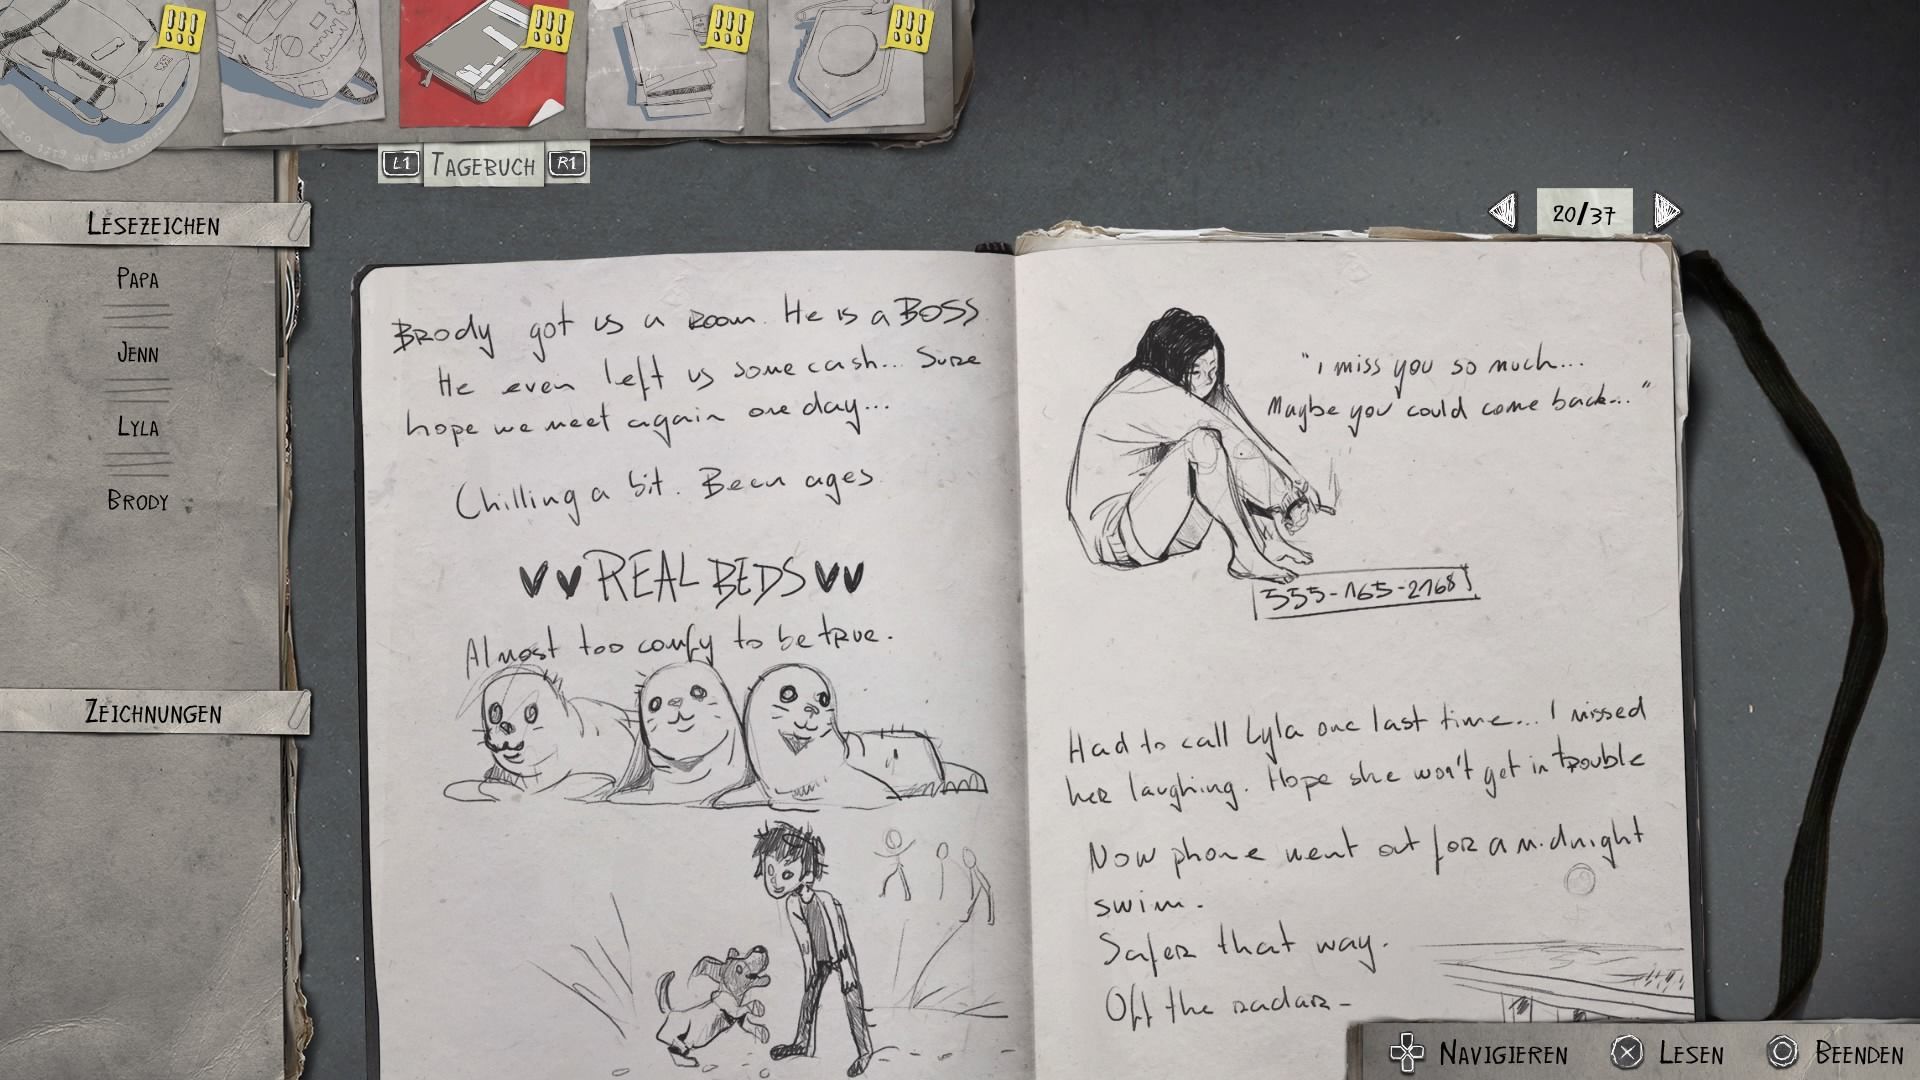 L1 TAGEBUCH R1
LESEZEICHEN
PAPA
JENN
LYLA
BRODY
ZEICHNUNGEN
20/37
BRODY got us a ROOM. He is a BOSS
He even left us some cash... Sure
hope we meet again one day...
Chilling a bit. Been ages
REAL BEDS
Almost too comfy to be true.
"I miss you so much...
Maybe you could come back..."
555-165-2168
Had to call Lyla one last time... I missed
her laughing. Hope she won't get in trouble
Now phone went out for a midnight
swim.
Safer that way.
Off the radar-
NAVIGIEREN LESEN BEENDEN